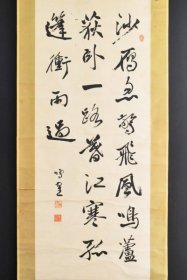 沙雁忽驚飛風鳴蘆
荻卧一路暮江寒孤
篷衝雨過